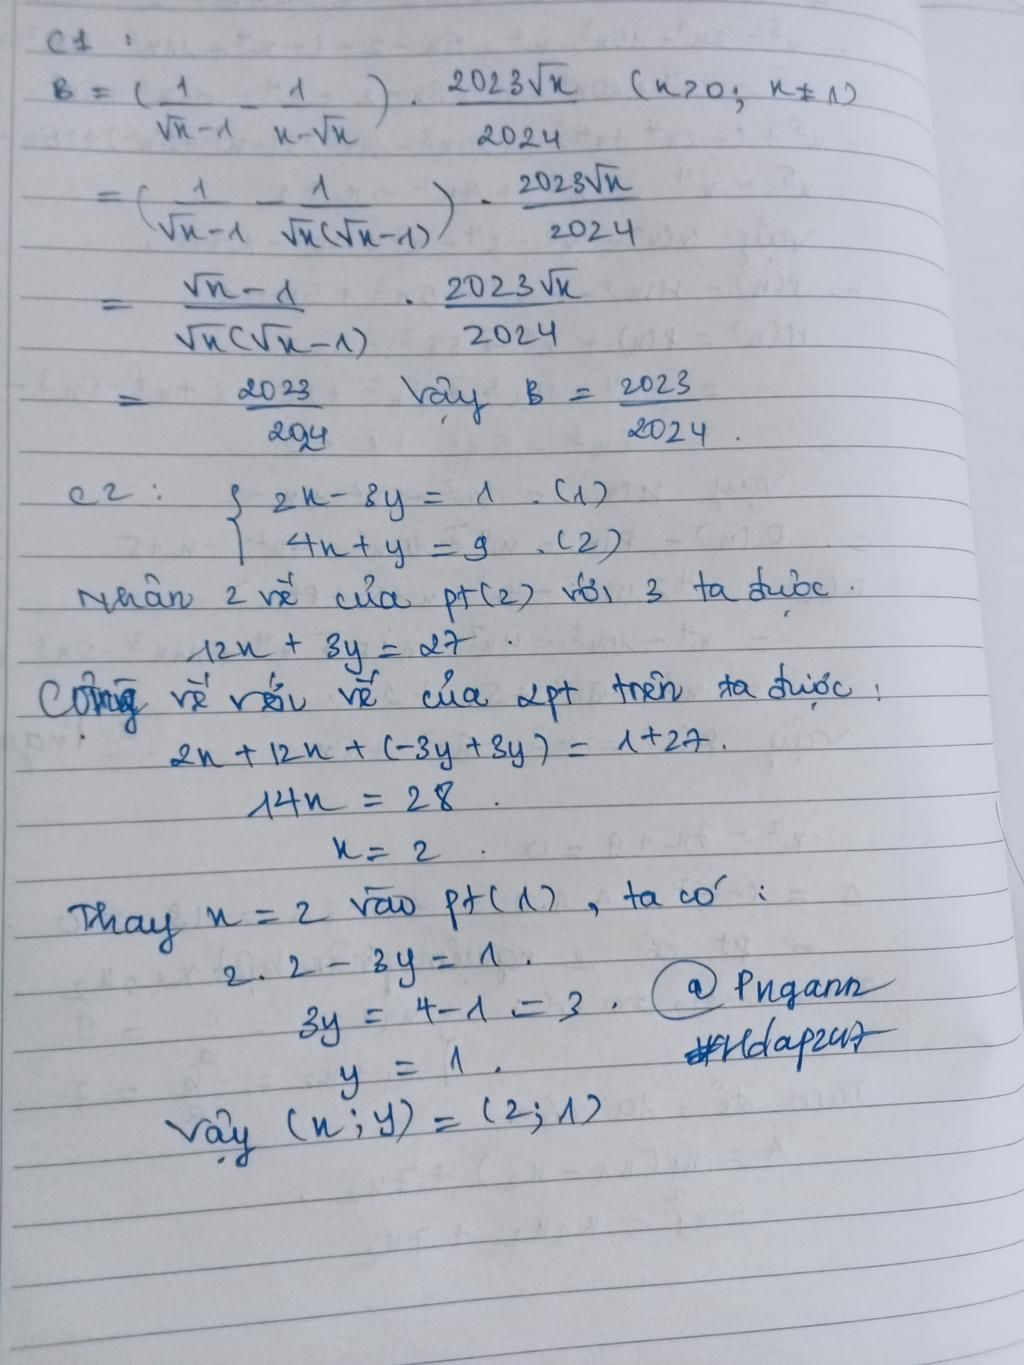 C1 :
B = (1/(√x-1) - 1/(x-√x)) . 2023√x/2024 (x>0; x≠1)
= (1/(√x-1) - 1/(√x(√x-1))) . 2023√x/2024
= (√x-1)/(√x(√x-1)) . 2023√x/2024
= 2023/2024 Vậy B = 2023/2024 .
C2 : { 2x-3y = 1 . (1)
4x+y = 9 . (2)
Nhân 2 vế của pt(2) với 3 ta được .
12x + 3y = 27 .
Cộng vế với vế của 2pt trên ta được :
2x + 12x + (-3y+3y) = 1+27 .
14x = 28 .
x = 2 .
Thay x = 2 vào pt(1) , ta có :
2. 2 - 3y = 1 .
3y = 4-1 = 3 . @ Pngann
y = 1 . #Hdap247
Vậy (x;y) = (2;1)